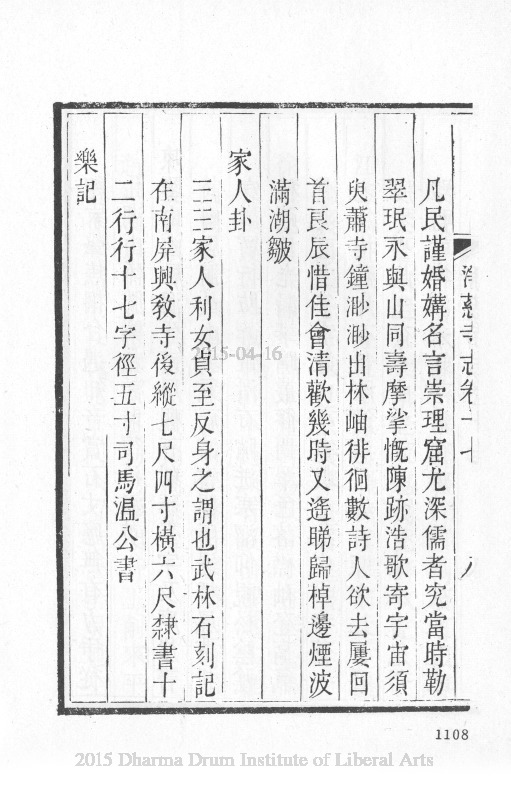 淨慈寺志卷十七 八
凡民謹婚媾名言崇理窟尤深儒者究當時勒
翠珉永與山同壽摩挲慨陳跡浩歌寄宇宙須
臾蕭寺鐘渺渺出林岫徘徊數詩人欲去屢回
首良辰惜佳會清歡幾時又遙睇歸棹邊煙波
滿湖皺
家人卦
家人利女貞至反身之謂也武林石刻記
在南屏興敎寺後縱七尺四寸橫六尺隸書十
二行行十七字徑五寸司馬溫公書
樂記
2015-04-16
1108
2015 Dharma Drum Institute of Liberal Arts